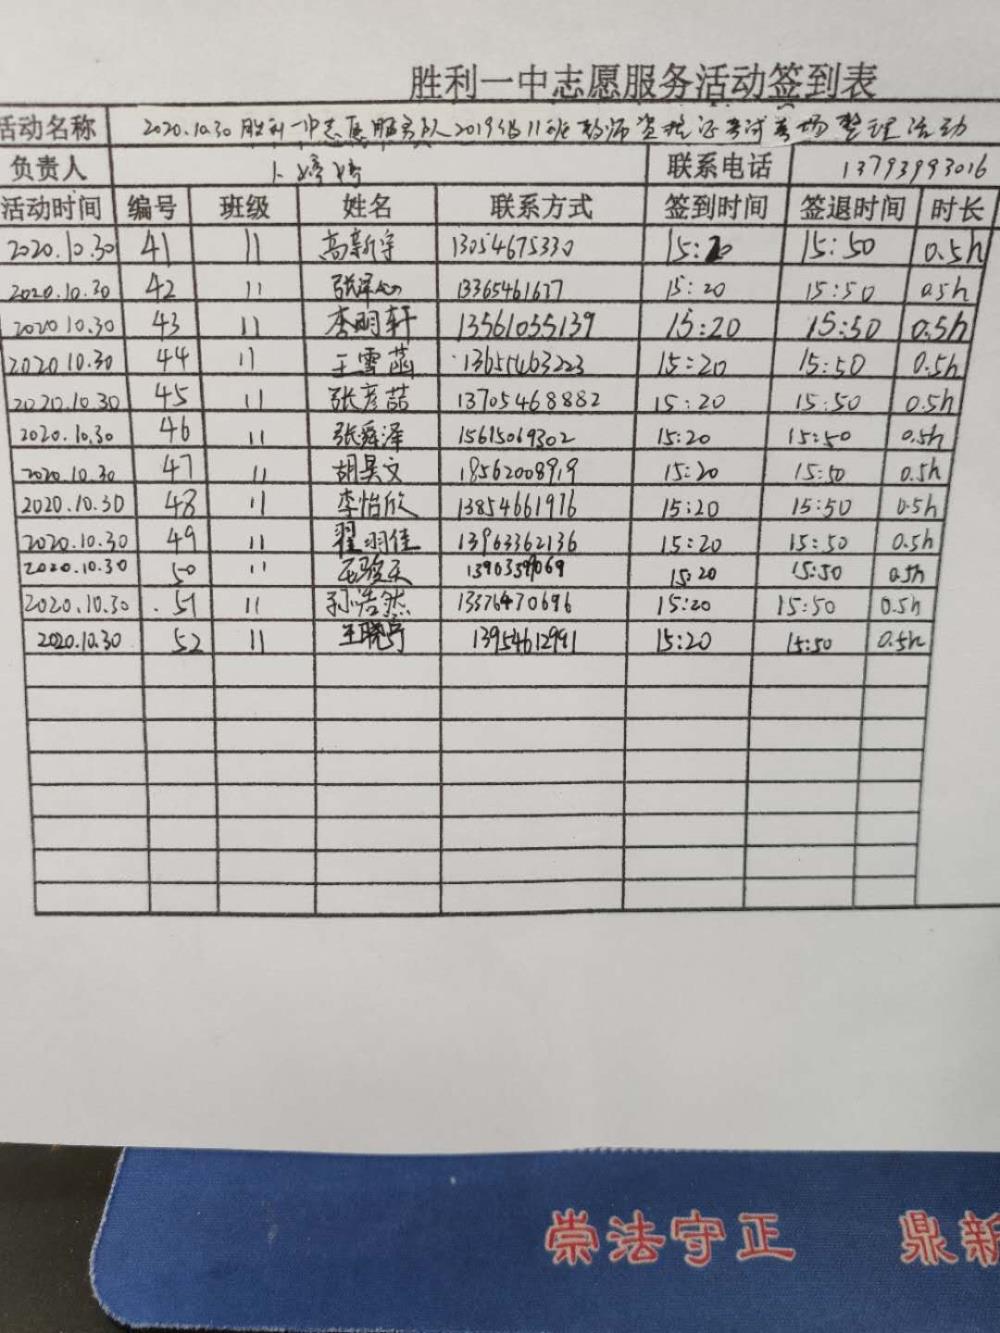 胜利一中志愿服务活动签到表
活动名称 2020.10.30胜利一中志愿服务队2019级11班教师资格证考试考场整理活动
负责人 卜婷婷 联系电话 13793993016
活动时间 编号 班级 姓名 联系方式 签到时间 签退时间 时长
2020.10.30 41 11 高新宇 13054675330 15:20 15:50 0.5h
2020.10.30 42 11 15:20 15:50 0.5h
2020 10.30 43 11 李明轩 13561055139 15:20 15:50 0.5h
2020 10.30 44 11 王雪菡 13655463223 15:20 15:50 0.5h
2020.10.30 45 11 张彦喆 13705468882 15:20 15:50 0.5h
2020.10.30 46 11 张舜泽 15615069302 15:20 15:50 0.5h
2020.10.30 47 11 胡昊文 18562008919 15:20 15:50 0.5h
2020.10.30 48 11 李怡欣 13854661976 15:20 15:50 0.5h
2020.10.30 49 11 翟羽佳 13963362136 15:20 15:50 0.5h
2020.10.30 50 11 15:20 15:50 0.5h
2020.10.30 51 11 孙浩然 13376470696 15:20 15:50 0.5h
2020.10.30 52 11 王晓宇 13954612991 15:20 15:50 0.5h
崇法守正 鼎新